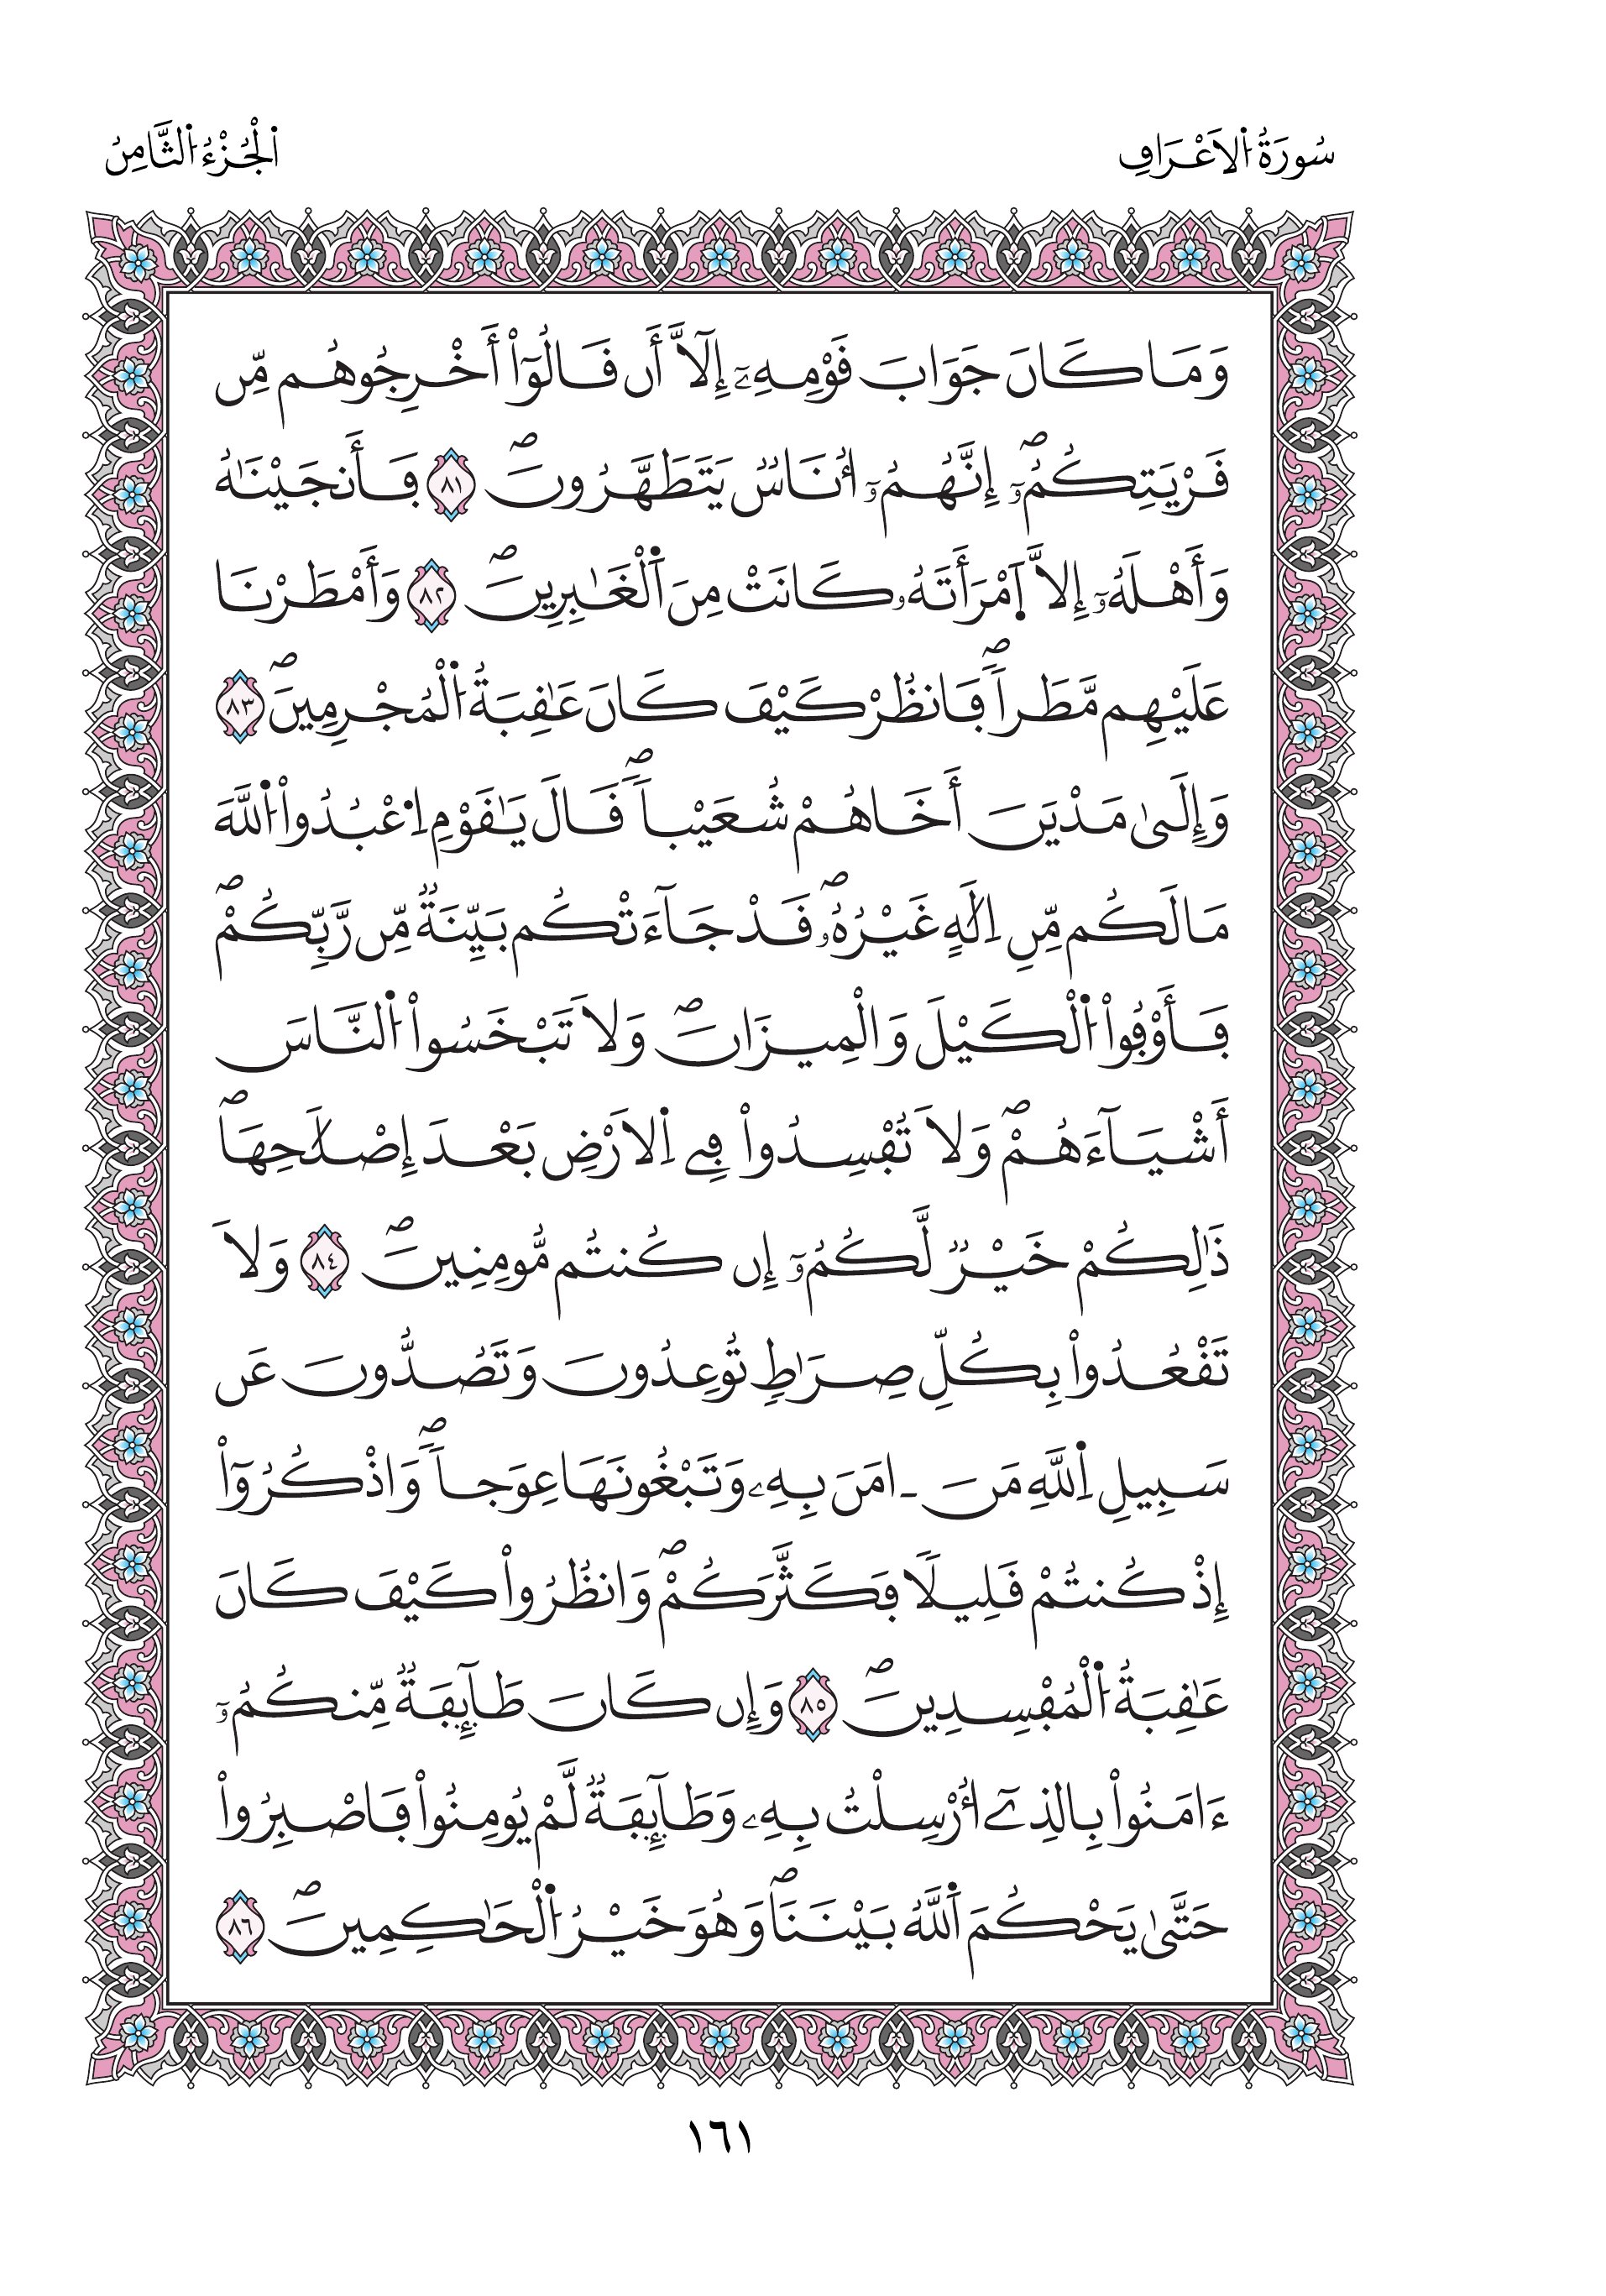 سُورَةُ اُ۬لَاعْرَافِ
اَ۬لْجُزْءُ اُ۬لثَّامِنُ
وَمَا كَانَ جَوَابَ قَوْمِهِۦٓ إِلَّآ أَن قَالُوٓاْ أَخْرِجُوهُم مِّن
قَرْيَتِكُمُۥٓۖ إِنَّهُمُۥٓ أُنَاسٞ يَتَطَهَّرُونَۖ ٨١ فَأَنجَيْنَٰهُ
وَأَهْلَهُۥٓ إِلَّا اَ۪مْرَأَتَهُۥ كَانَتْ مِنَ اَ۬لْغَٰبِرِينَۖ ٨٢ وَأَمْطَرْنَا
عَلَيْهِم مَّطَراٗۖ فَانظُرْ كَيْفَ كَانَ عَٰقِبَةُ اُ۬لْمُجْرِمِينَۖ ٨٣
وَإِلَىٰ مَدْيَنَ أَخَاهُمْ شُعَيْباٗۖ قَالَ يَٰقَوْمِ اِ۟عْبُدُواْ اُ۬للَّهَ
مَا لَكُم مِّنِ اِلَٰهٍ غَيْرُهُۥۖ قَدْ جَآءَتْكُم بَيِّنَةٞ مِّن رَّبِّكُمْۖ
فَأَوْفُواْ اُ۬لْكَيْلَ وَالْمِيزَانَۖ وَلَا تَبْخَسُواْ اُ۬لنَّاسَ
أَشْيَآءَهُمْۖ وَلَا تُفْسِدُواْ فِے اِ۬لَارْضِ بَعْدَ إِصْلَٰحِهَاۖ
ذَٰلِكُمْ خَيْرٞ لَّكُمُۥٓ إِن كُنتُم مُّومِنِينَۖ ٨٤ وَلَا
تَقْعُدُواْ بِكُلِّ صِرَٰطٖ تُوعِدُونَ وَتَصُدُّونَ عَن
سَبِيلِ اِ۬للَّهِ مَنَ اٰمَنَ بِهِۦ وَتَبْغُونَهَا عِوَجاٗۖ وَاذْكُرُوٓاْ
إِذْ كُنتُمْ قَلِيلاٗ فَكَثَّرَكُمْۖ وَانظُرُواْ كَيْفَ كَانَ
عَٰقِبَةُ اُ۬لْمُفْسِدِينَۖ ٨٥ وَإِن كَانَ طَآئِفَةٞ مِّنكُمُۥٓ
ءَامَنُواْ بِالذِےٓ أُرْسِلْتُ بِهِۦ وَطَآئِفَةٞ لَّمْ يُومِنُواْ فَاصْبِرُواْ
حَتَّىٰ يَحْكُمَ اَ۬للَّهُ بَيْنَنَاۖ وَهُوَ خَيْرُ اُ۬لْحَٰكِمِينَۖ ٨٦
١٦١